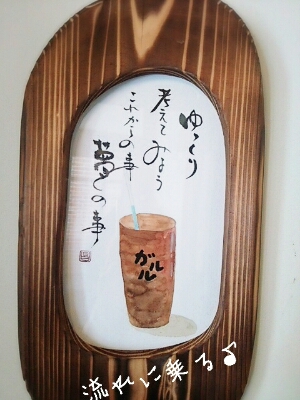 ゆっくり
考えてみよう
これからの事
夢の事
ガルル
流れに乗る♪